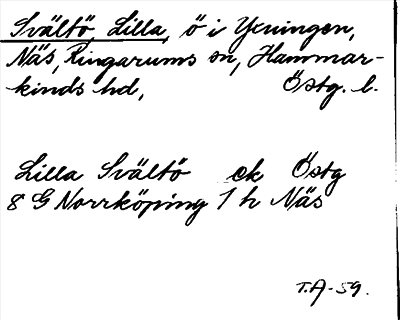 Svältö, Lilla, ö i Yxningen,
Näs, Ringarums sn, Hammar-
kinds hd, Östg. l.
Lilla Svältö ek Östg
8 G Norrköping 1 h Näs
T.A-59.